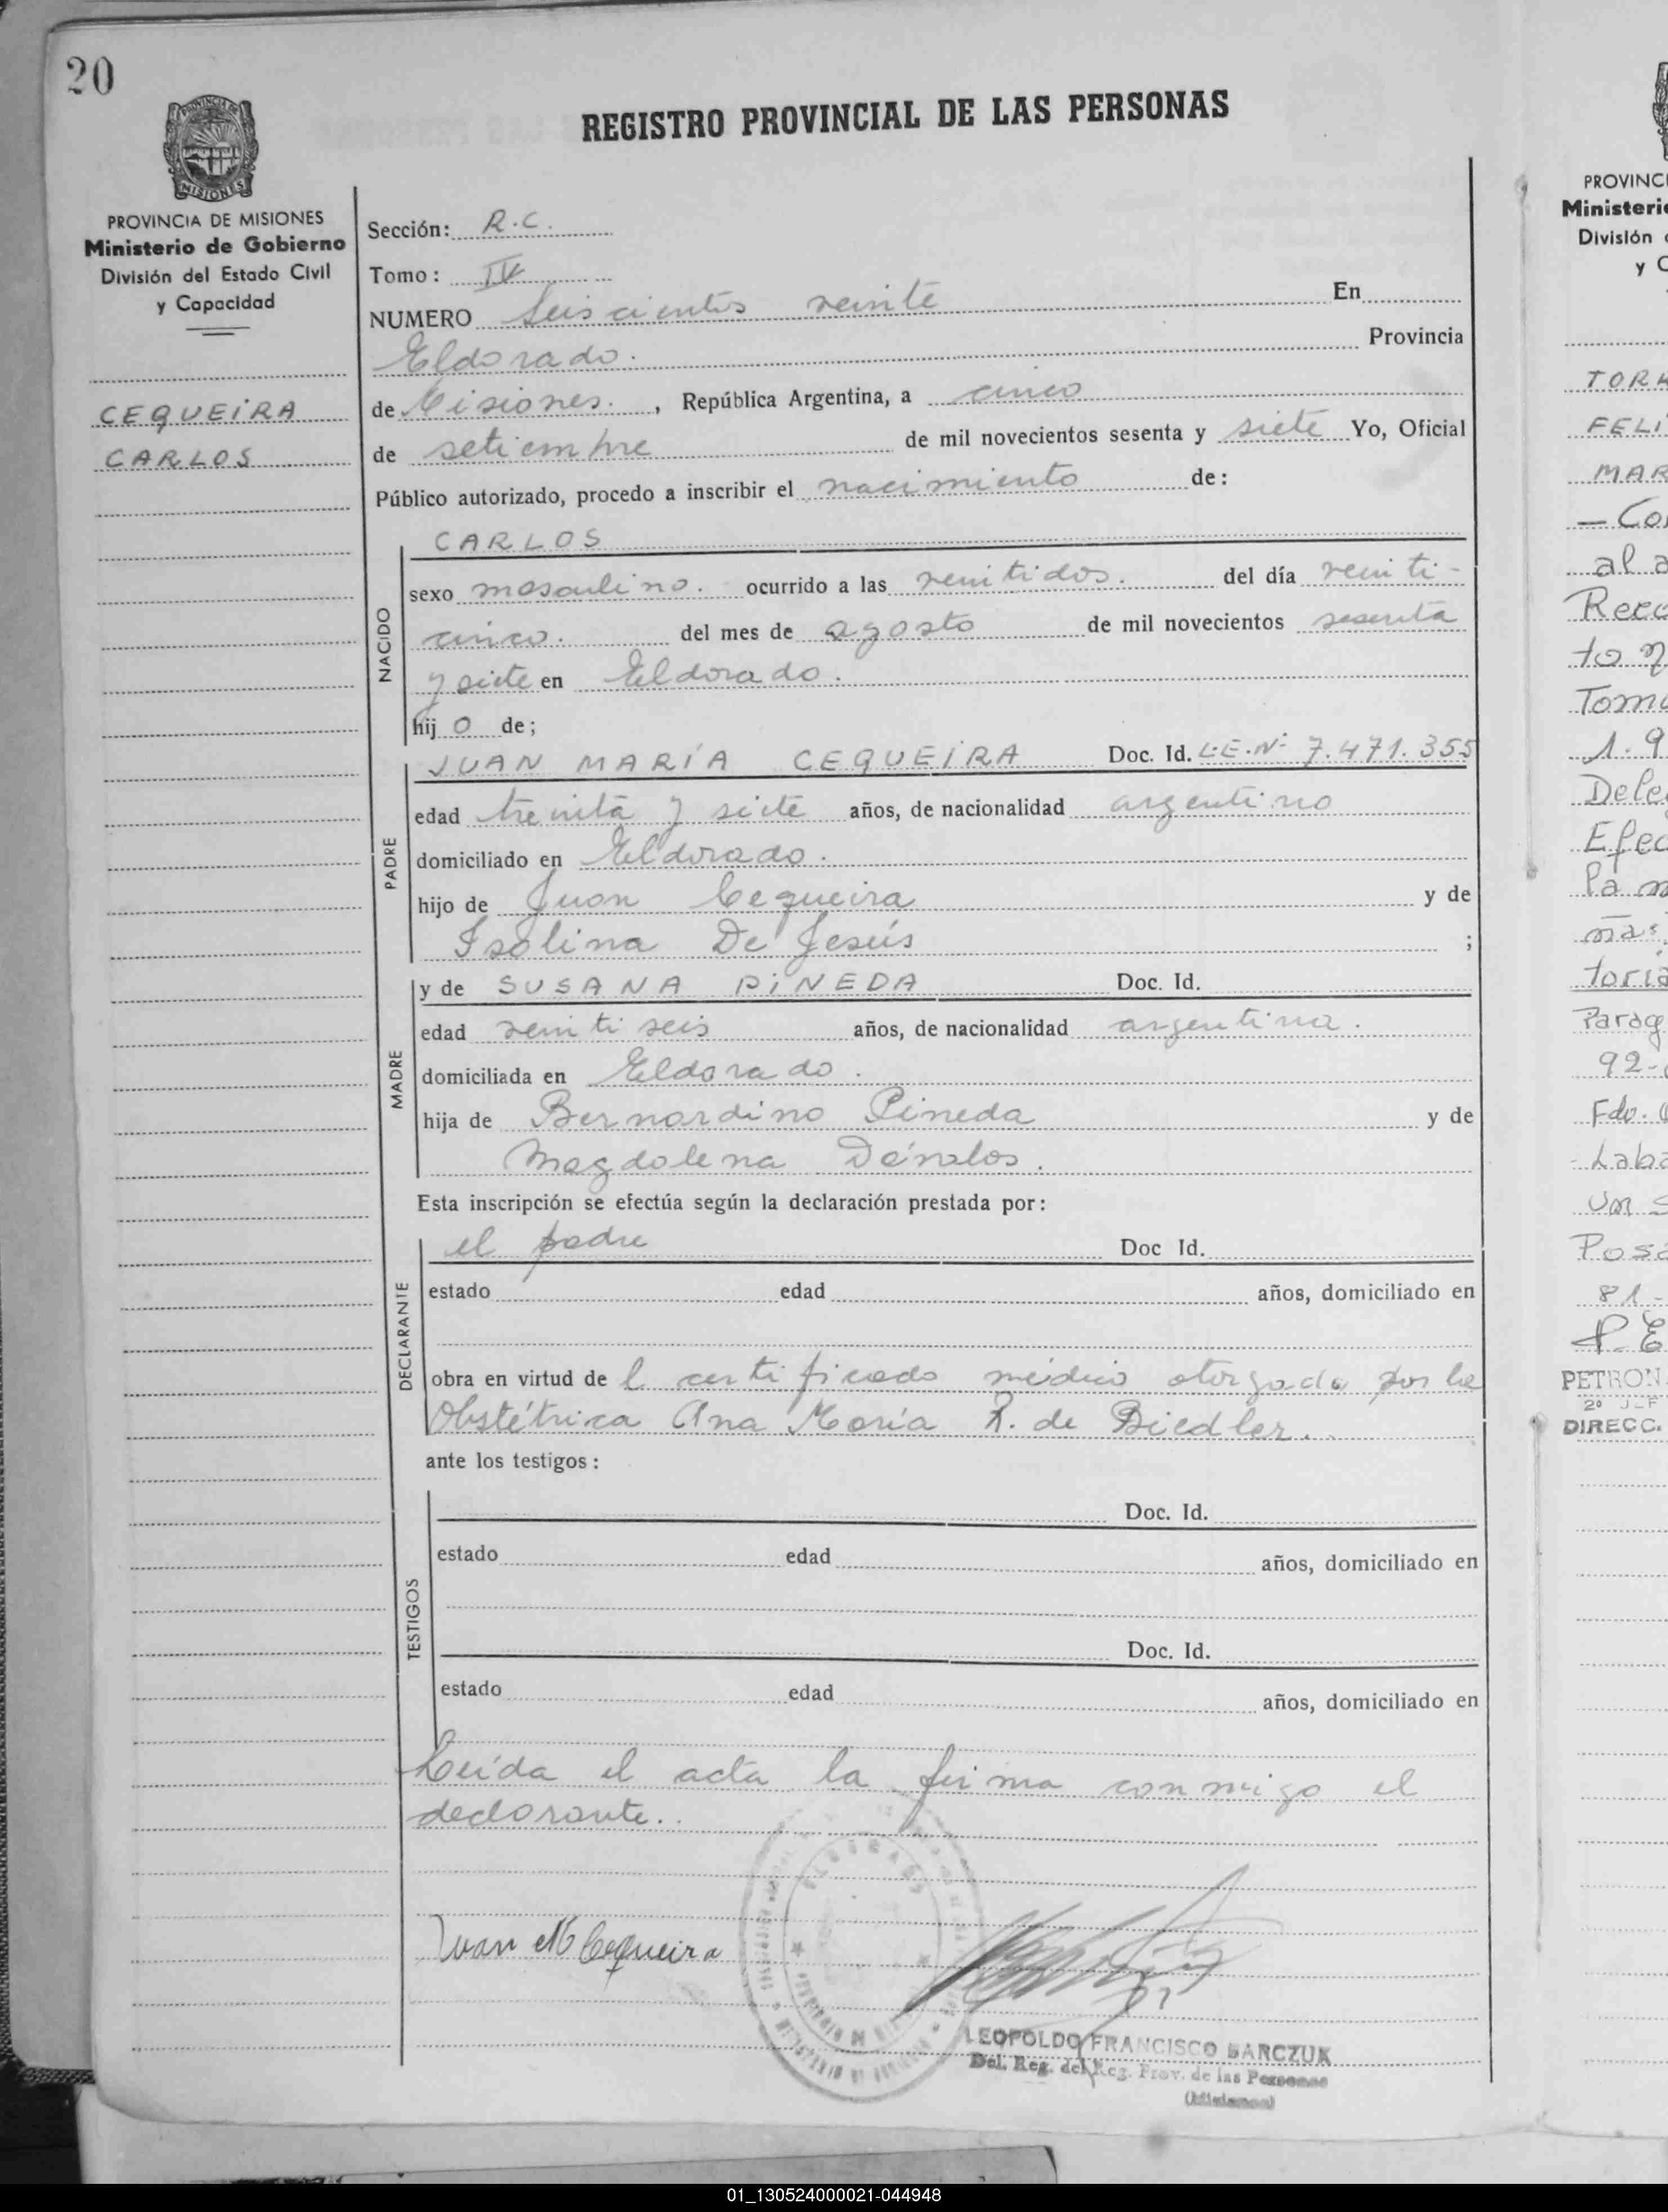 20
REGISTRO PROVINCIAL DE LAS PERSONAS
PROVINCIA DE MISIONES
Ministerio de Gobierno
División del Estado Civil
y Capacidad
CEQUEIRA
CARLOS
Sección: R.C.
Tomo: IV
NUMERO Seiscientos veinte En
Eldorado. Provincia
de Misiones., República Argentina, a cinco
de setiembre de mil novecientos sesenta y siete Yo, Oficial
Público autorizado, procedo a inscribir el nacimiento de:
NACIDO
CARLOS
sexo masculino. ocurrido a las veintidos. del día veinti-
cinco. del mes de agosto de mil novecientos sesenta
y siete en Eldorado.
hij o de;
PADRE
JUAN MARÍA CEQUEIRA Doc. Id. L.E.Nº 7.471.355
edad treinta y siete años, de nacionalidad argentino
domiciliado en Eldorado.
hijo de Juan Cequeira y de
Isolina De Jesús ;
MADRE
y de SUSANA PINEDA Doc. Id.
edad veintiseis años, de nacionalidad argentina.
domiciliada en Eldorado.
hija de Bernardino Pineda y de
Magdalena Dávalos.
Esta inscripción se efectúa según la declaración prestada por:
DECLARANTE
el padre Doc Id.
estado edad años, domiciliado en
obra en virtud de l certificado médico otorgado por la
Obstétrica Ana María R. de Biedler.
ante los testigos:
TESTIGOS
Doc. Id.
estado edad años, domiciliado en
Doc. Id.
estado edad años, domiciliado en
Leída el acta la firma conmigo el
declarante.
Juan M Cequeira
LEOPOLDO FRANCISCO SARCZUK
Del. Reg. del Reg. Prov. de las Personas
(Misiones)
PROVINCI
Ministeri
División
y C
TORR
FELI
MAR
- Co
al a
Reco
to n
Tomo
1.9
Dele
Efec
la m
toria
Parag
92-
Fdo.
Laba
un s
Posa
81-
P.E
PETRON
2º JEF
DIRECC.
01_130524000021-044948